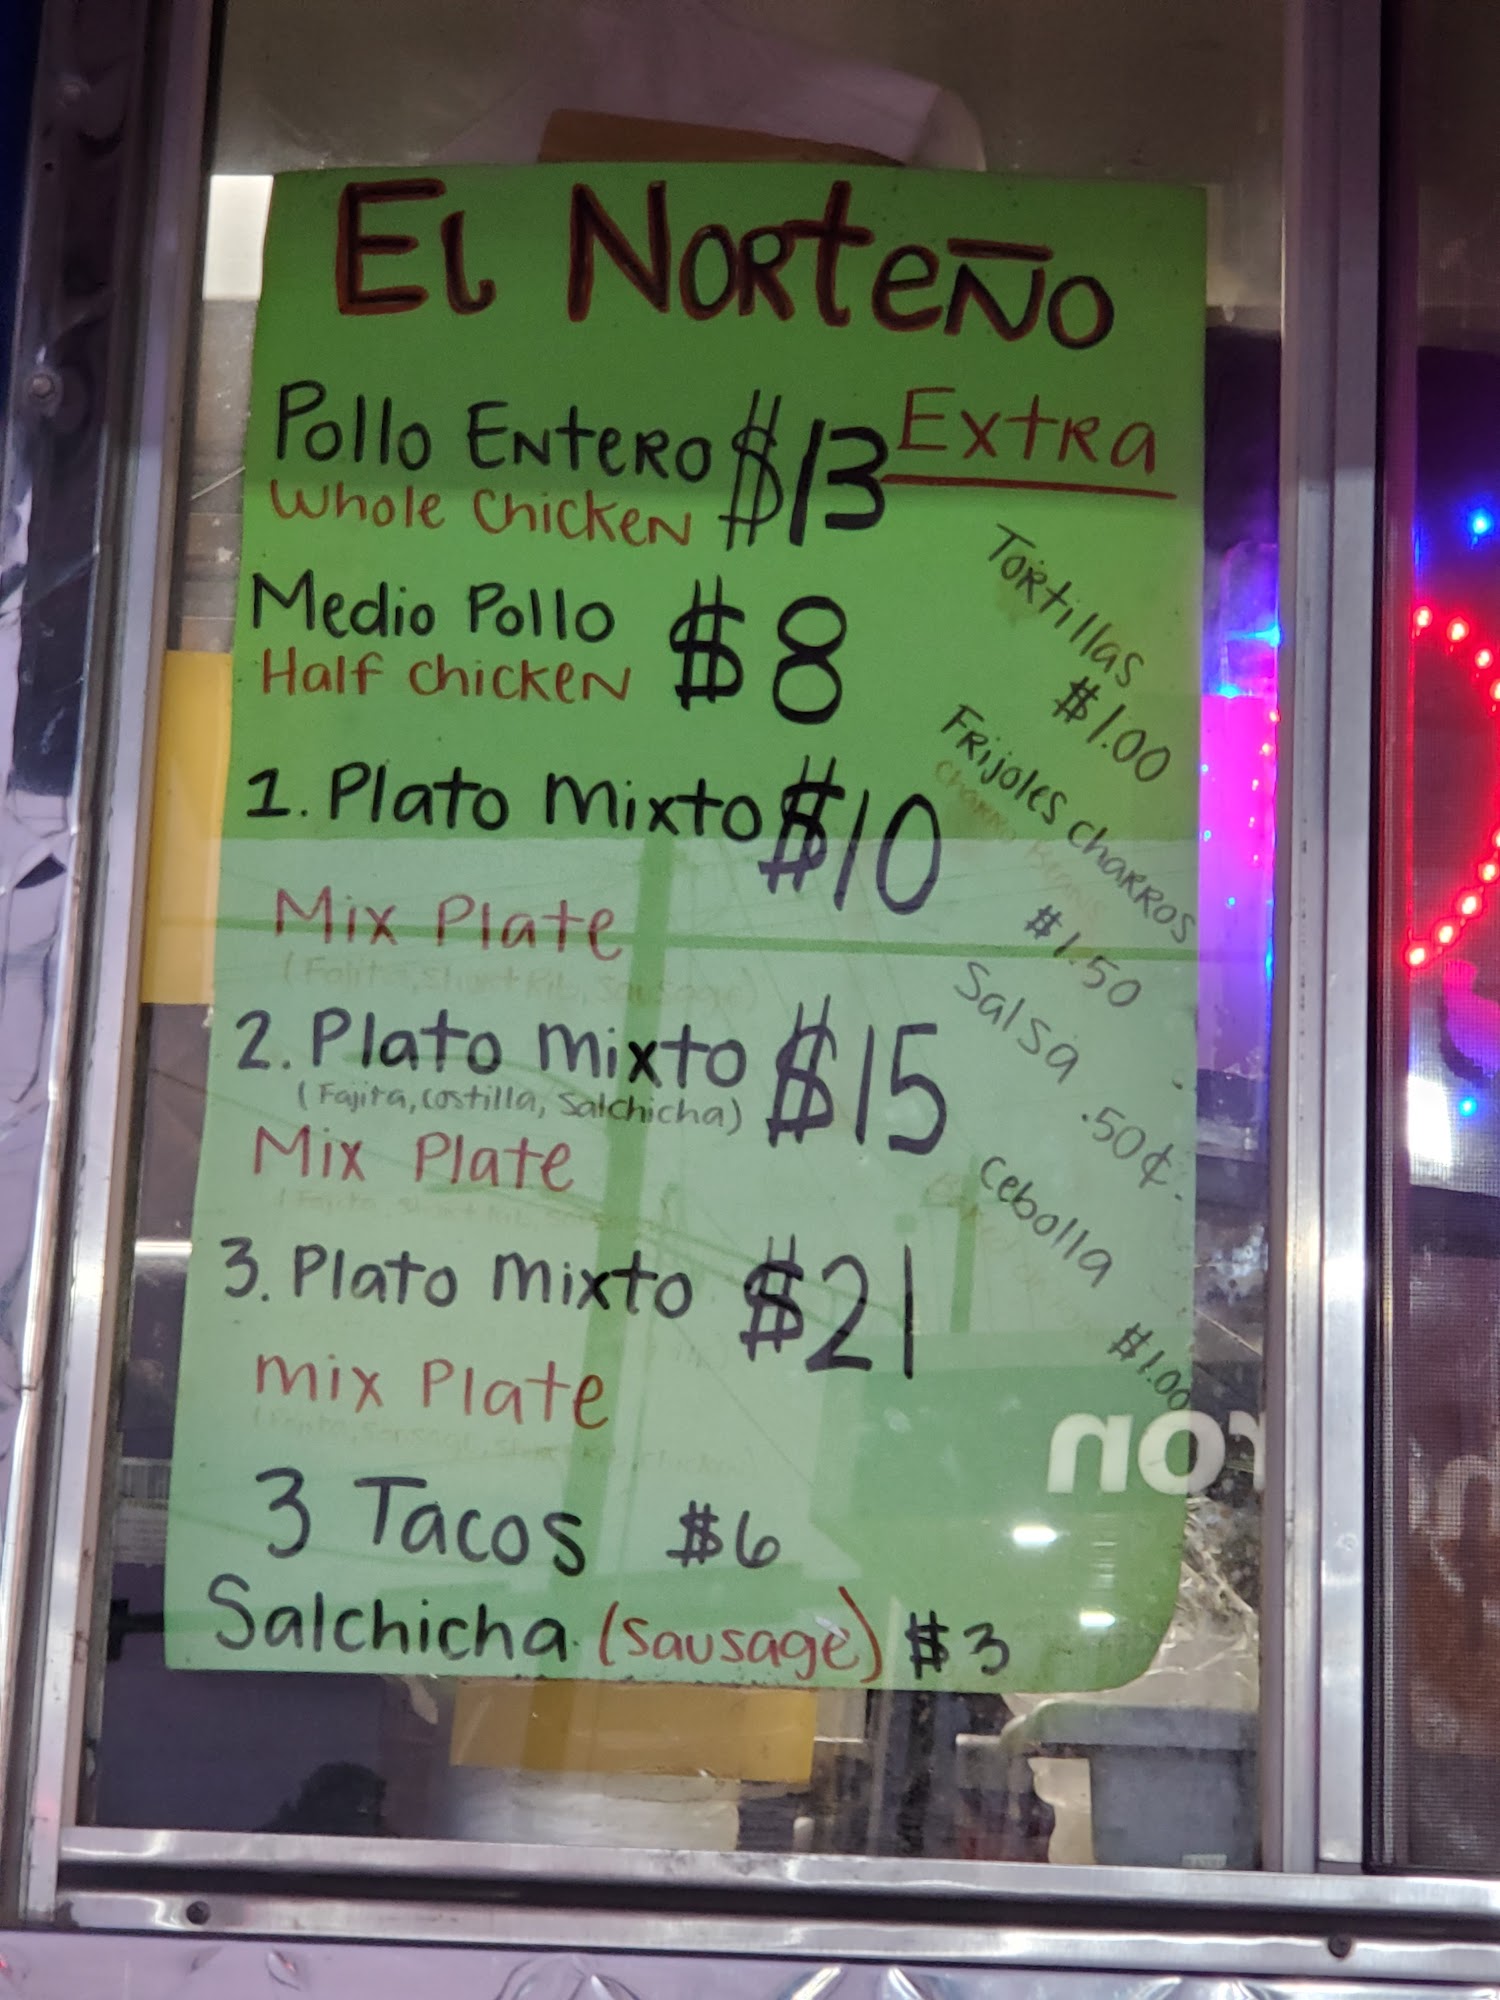 El Norteño
Pollo Entero $13
Whole Chicken
Medio Pollo $8
Half Chicken
1. Plato mixto $10
Mix Plate
(Fajita, Short Rib, Sausage)
2. Plato mixto $15
(Fajita, costilla, Salchicha)
Mix Plate
(Fajita, Short Rib, Sausage)
3. Plato mixto $21
mix Plate
3 Tacos $6
Salchicha (Sausage) $3
Extra
Tortillas
$1.00
Frijoles charros
Charro Beans
$1.50
Salsa
.50¢
Cebolla
$1.00